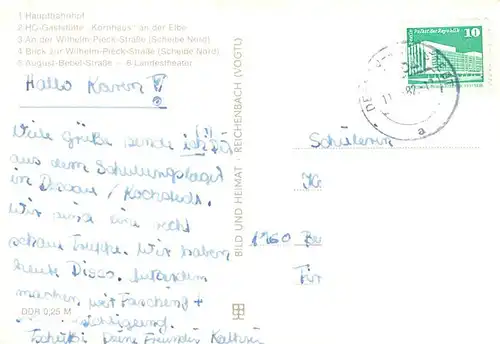 1 Hauptbahnhof
2 HO-Gaststätte "Kornhaus" an der Elbe
3 An der Wilhelm-Pieck-Straße (Scheibe Nord)
4 Blick zur Wilhelm-Pieck-Straße (Scheibe Nord)
5 August-Bebel-Straße - 6 Landestheater
Hallo Karin!
Viele Grüße sende ich Dir
aus dem Schulungslager
in Dessau / Kochstedt.
Wir sind eine recht
schaue Truppe. Wir haben
heute Disco. Außerdem
machen wir Fasching +
sichtigung.
Tschüßi Deine Freundin
DDR 0,25 M
BILD UND HEIMAT · REICHENBACH (VOGTL)
Palast der Republik
10
DDR
11
82
a
Schülerin
1960